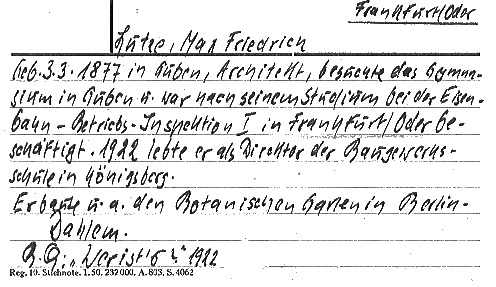 Frankfurt/Oder
Max Friedrich
Geb. 3.3.1877 in Guben, Architekt, besuchte das Gymna-
sium in Guben u. war nach seinem Studium bei der Eisen-
bahn-Betriebs-Inspektion I in Frankfurt/Oder be-
schäftigt. 1922 lebte er als Direktor der Baugewerks-
schule in Königsberg.
Erbaute u. a. den Botanischen Garten in Berlin-
Dahlem.
B.Q: „Wer ist's" 1922
Reg. 10. Stichnote. 1. 50. 232 000. A. 803. S. 4062